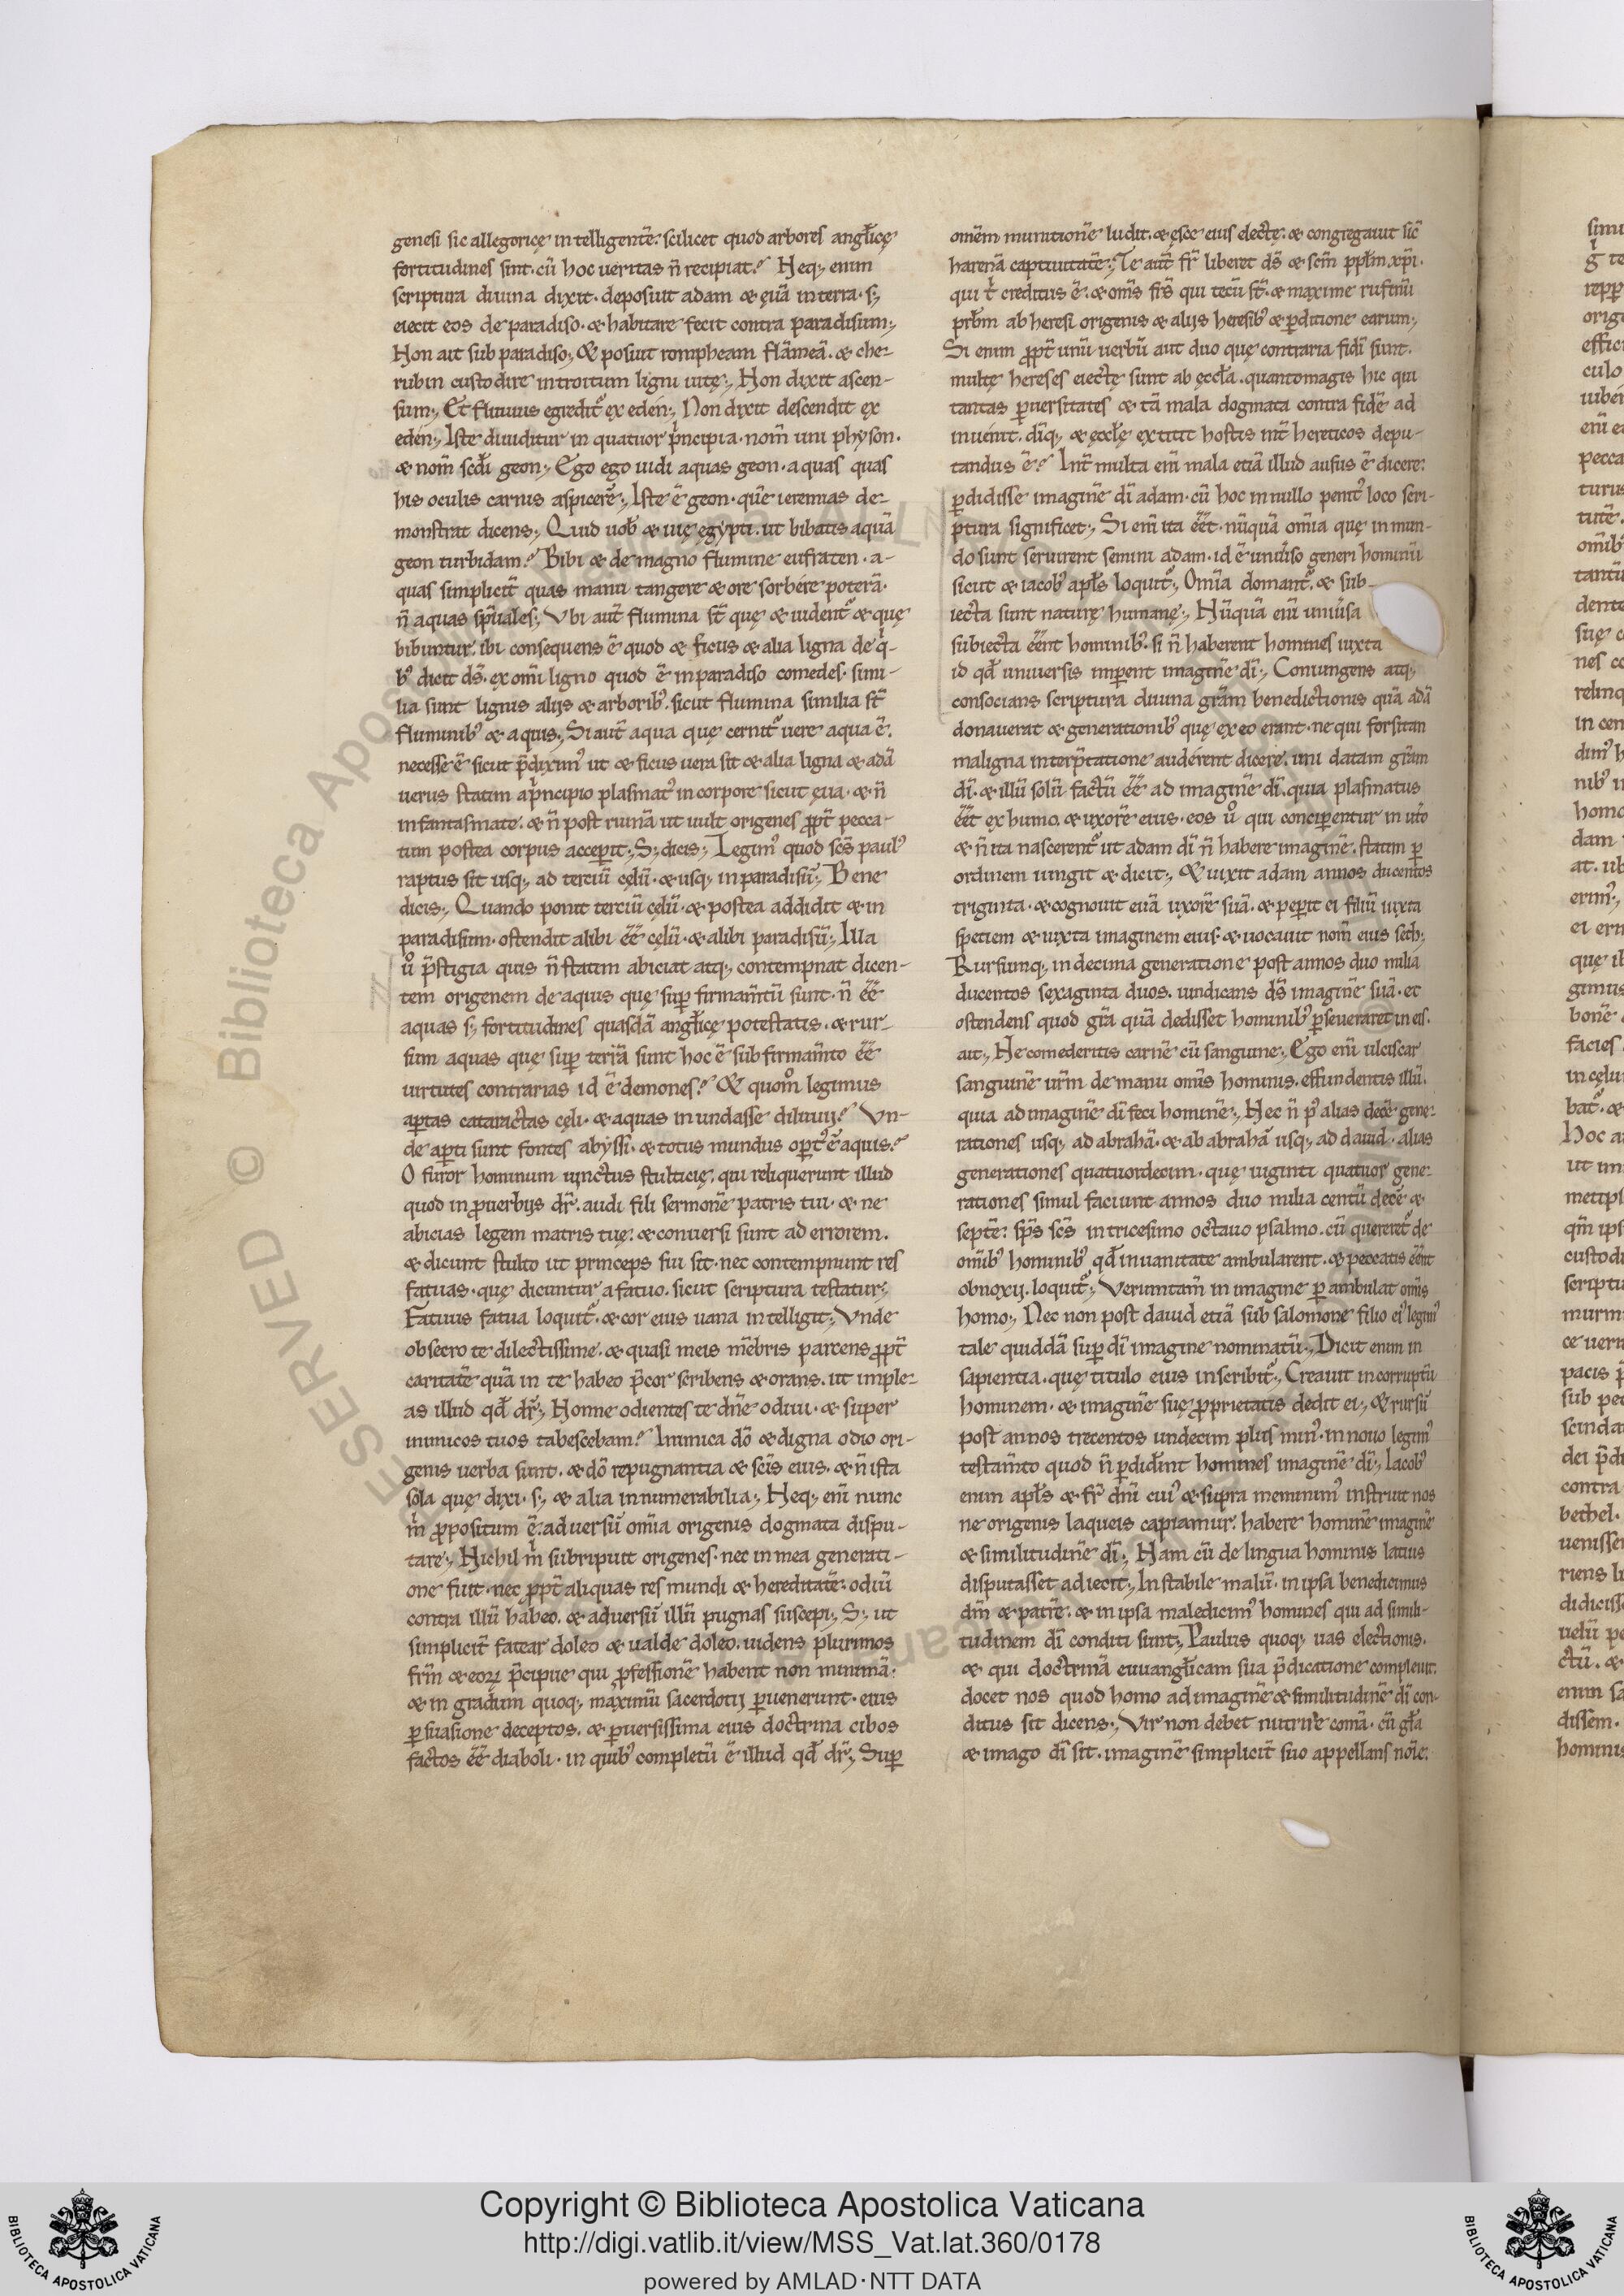 genesi sic allegoricę intelligent̄e. scilicet quod arbores angłicę
fortitudines sint. cū hoc ueritas n̄ recipiat? Neq; enim
scriptura diuina dixit. deposuit adam & ęuā in terra. s;
eiecit eos de paradiso. & habitare fecit contra paradisum;
Non ait sub paradiso; & posuit rompheam flāmeā. & che-
rubin custodire introitum ligni uitę; Non dixit ascen-
sum; Et fluuius egredit᷑ ex edén; Non dixit descendit ex
edén; Iste diuiditur in quatuor pͥncipia. nom̄ uni physon.
& nom̄ scđi geon; Ego ego uidi aquas geon. aquas quas
his oculis carnis aspicerē; Iste ē geon. quē ieremias de-
monstrat dicens; Quid uob̵ & uię egypti. ut bibatis aquā
geon turbidam? Bibi & de magno flumine eufraten. a-
quas simplicit̄ quas manu tangere & ore sorbére poterā.
n̄ aquas sp̄uales; Vbi aut̄ flumina st̄ quę & uident᷑ & quę
bibuntur. ibi consequens ē quod & ficus & alia ligna de qͥ-
b; dicit ds̄. ex om̄i ligno quod ē in paradiso comedes. simi-
lia sunt lignis alijs & arborib;. sicut flumina similia st̄
fluminib; & aquis; Si aut̄ aqua quę cernit᷑ uere aqua ē.
necesse ē sicut p̄dixim᷒ ut & ficus uera sit & alia ligna & adā
uerus statim a pͥncipio plasmat᷒ in corpore sicut ęua. & n̄
in fantasmate. & n̄ post ruinā ut uult origenes ꝓpt̄ pecca-
tum postea corpus acceꝑit; S; dicis; Legim᷒ quod scs̄ paul᷒
raptus sit usq; ad terciū cęlū. & usq; in paradisū; Bene
dicis; Quando ponit terciū cęlū. & postea addidit & in
paradisum. ostendit alibi ēē cęlū. & alibi paradisū; Illa
uͦ p̄stigia quis n̄ statim abiciat atq; contempnat dicen-
tem origenem de aquis quę suꝑ firmam̄tū sunt. n̄ ēē
aquas s; fortitudines quasdā angłicę potestatis. & rur-
sum aquas quę suꝑ terrā sunt hoc ē sub firmam̄to ēē
uirtutes contrarias id ē demones? & quomͦ legimus
aꝑtas cataractas cęli. & aquas inundasse diluuij? Vn-
de aꝑti sunt fontes abyssi. & totus mundus oꝑt᷒ ē aquis?
O furor hominum iunctus stulticię. qui reliquerunt illud
quod in ꝓuerbijs dr̄. audi fili sermonē patris tui. & ne
abicias legem matris tuę. & conuersi sunt ad errorem.
& dicunt stulto ut princeps sui sit. nec contempnunt res
fatuas. quę dicuntur a fatuo. sicut scriptura testatur;
Fatuus fatua loquit᷑. & cor eius uana intelligit; Vnde
obsecro te dilectissime. & quasi meis mēbris parcens ꝓpt̄
caritatē quā in te habeo p̄cor scribens & orans. ut imple-
as illud qđ dr̄; Nonne odientes te dn̄e odiui. & super
inimicos tuos tabescebam? Inimica dō & digna odio ori-
genis uerba sunt. & dō repugnantia & scīs eius. & n̄ ista
sola quę dixi. s; & alia innumerabilia; Neq; eni᷒ nunc
mͥ ꝓpositum ē. aduersū omīa origenis dogmata dispu-
tare; Nichil mͥ subripuit origenes. nec in mea generati-
one fuit. nec ꝓpt̄ aliquas res mundi & hereditatē. odiū
contra illū habeo. & aduersū illū pugnas suscepi; S; ut
simplicit̄ fatear doleo & ualde doleo. uidens plurimos
frm̄ & eoꝝ p̄cipue qui ꝓfessionē habent non minimā.
& in gradum quoq; maximū sacerdotij ꝑuenerunt. eius
ꝑsuasione deceptos. & ꝑuersissima eius doctrina cibos
factos ēē diaboli. in quib; completū ē illud qđ dr̄; Suꝑ
omēm munitionē ludit. & ęsce eius electę. & congregauit sic̄
harenā captiuitatē; Te aut̄ fr̄ liberet ds̄ & scm̄ ppłm xp̄i.
qui tͥ creditus ē. & oms̄ frs̄ qui tecū st̄. & maxime rufinū
prb̄m ab heresi origenis & alijs heresib; & ꝑditione earum;
Si enim ꝓpt̄ unū uerbū aut duo quę contraria fidi sunt.
multę hereses eiectę sunt ab ęccła. quantomagis hic qui
tantas ꝑuersitates & tā mala dogmata contra fidē ad
inuénit. dīq; & ęccłę extitit hostis int̄ hereticos depu-
tandus ē? Int̄ multa enī mala etiā illud ausus ē dicere.
ꝑdidisse imaginē dī adam. cū hoc in nullo penit᷒ loco scri-
ptura significet; Si enī ita ēēt. nūquā omīa quę in mun-
do sunt seruirent semini adam. id ē uniūso generi hominū
sicut & iacob; apłs loquit᷑; Omīa domant᷑. & sub-
iecta sunt naturę humanę; Nūquā enī uniūsa
subiecta ēēnt hominib;. si n̄ haberent homines iuxta
id qđ uniuersis imꝑent imaginē dī; Coniungens atq;
consocians scriptura diuina grām benedictionis quā adā
donauerat & generationib; quę ex eo erant. ne qui forsitan
maligna interp̄tatione audérent dicere. uni datam grām
dī. & illū solū factū ēē ad imaginē dī. quia plasmatus
ēēt ex humo. & uxorē eius. eos uͦ qui conciꝑentur in ut̄o
& n̄ ita nascerent᷑ ut adam dī n̄ habere imaginē. statim ꝑ
ordinem iungit & dicit; & uixit adam annos ducentos
triginta. & cognouit euā uxorē suā. & peꝑit ei filiū iuxta
spetiem & iuxta imaginem eius. & uocauit nom̄ eius seth;
Rursumq; in decima generatione post annos duo milia
ducentos sexaginta duos. uindicans ds̄ imaginē suā. et
ostendens quod grā quā dedisset hominib; ꝑseueraret in eis.
ait; Ne comederitis carnē cū sanguine; Ego enī ulciscar
sanguinē urm̄ de manu omīs hominis. effundentis illū.
quia ad imaginē dī feci hominē; Nec n̄ p᷒ alias decē gene-
rationes usq; ad abrahā. & ab abrahā usq; ad dauid. alias
generationes quatuordecim. quę uiginti quatuor gene-
rationes simul faciunt annos duo milia centū decē &
septē. sps̄ scs̄ in tricesimo octauo psalmo. cū quereret᷑ de
omīb; hominib; qđ in uanitate ambularent. & peccatis ēēnt
obnoxij. loquit᷑; Veruntam̄ in imagine ꝑambulat omīs
homo; Nec non post dauid etiā sub salomone filio ei᷒ legim᷒
tale quiddā suꝑ dī imagine nominatū; Dicit enim in
sapientia. quę titulo eius inscribit᷑; Creauit incorruptū
hominem. & imaginē suę ꝓprietatis dedit ei; & rursū
post annos trecentos undecim plus min᷒. in nouo legim᷒
testam̄to quod n̄ ꝑdider̄unt homines imaginē dī; Iacob;
enim apłs & fr̄ dnī cui᷒ & supra meminim᷒ instruit nos
ne origenis laqueis capiamur. habere hominē imaginē
& similitudinē dī; Nam cū de lingua hominis latius
disputasset adiecit; Instabile malū. in ipsa benedicimus
dm̄ & patrē. & in ipsa maledicim᷒ homines qui ad simili-
tudinem dī conditi sunt; Paulus quoq; uas electionis.
& qui doctrinā euuangłicam sua p̄dicatione compleuit.
docet nos quod homo ad imaginē & similitudinē dī con-
ditus sit dicens; Vir non debet nutrire comā. cū gła
& imago dī sit. imaginē simplicit̄ suo appellans noīe.
Copyright © Biblioteca Apostolica Vaticana
http://digi.vatlib.it/view/MSS_Vat.lat.360/0178
powered by AMLAD·NTT DATA
BIBLIOTECA APOSTOLICA VATICANA
BIBLIOTECA APOSTOLICA VATICANA